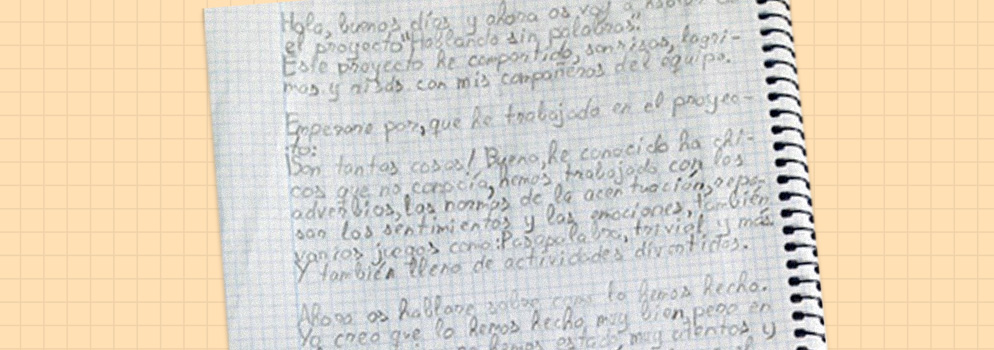 Hola, buenos días, y ahora os voy a
el proyecto "Hablando sin palabras".
Este proyecto he compartido, sonrisas, lagri-
mas y risas con mis compañeros del equipo.
Emperaré por, que he trabajado en el proyec-
to:
Son tantas cosas! Bueno, he conocido ha chi-
cos que no conocía, hemos trabajado con los
adverbios, las normas de la acentuación, repa-
san los sentimientos y las emociones, también
varios juegos como: Pasapalabra, trivial, y más.
Y también lleno de actividades divertidas.
Ahora os hablare sobre como lo hemos hecho.
Yo creo que lo hemos hecho muy bien, pero en
hemos estado muy atentos y